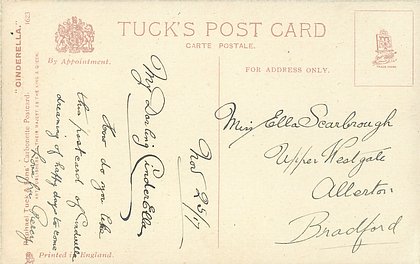 TUCK'S POST CARD
CARTE POSTALE.
By Appointment.
FOR ADDRESS ONLY.
TRADE MARK
"CINDERELLA."
Raphael Tuck & Sons' Culoenette Postcard 1623
Nov 25/17
My Darling CinderElla
How do you like
this postcard of Cinderella
dreaming of happy days to come
from Percy
Miss Ella Scarbrough
Upper Westgate
Allerton
Bradford
Printed in England.